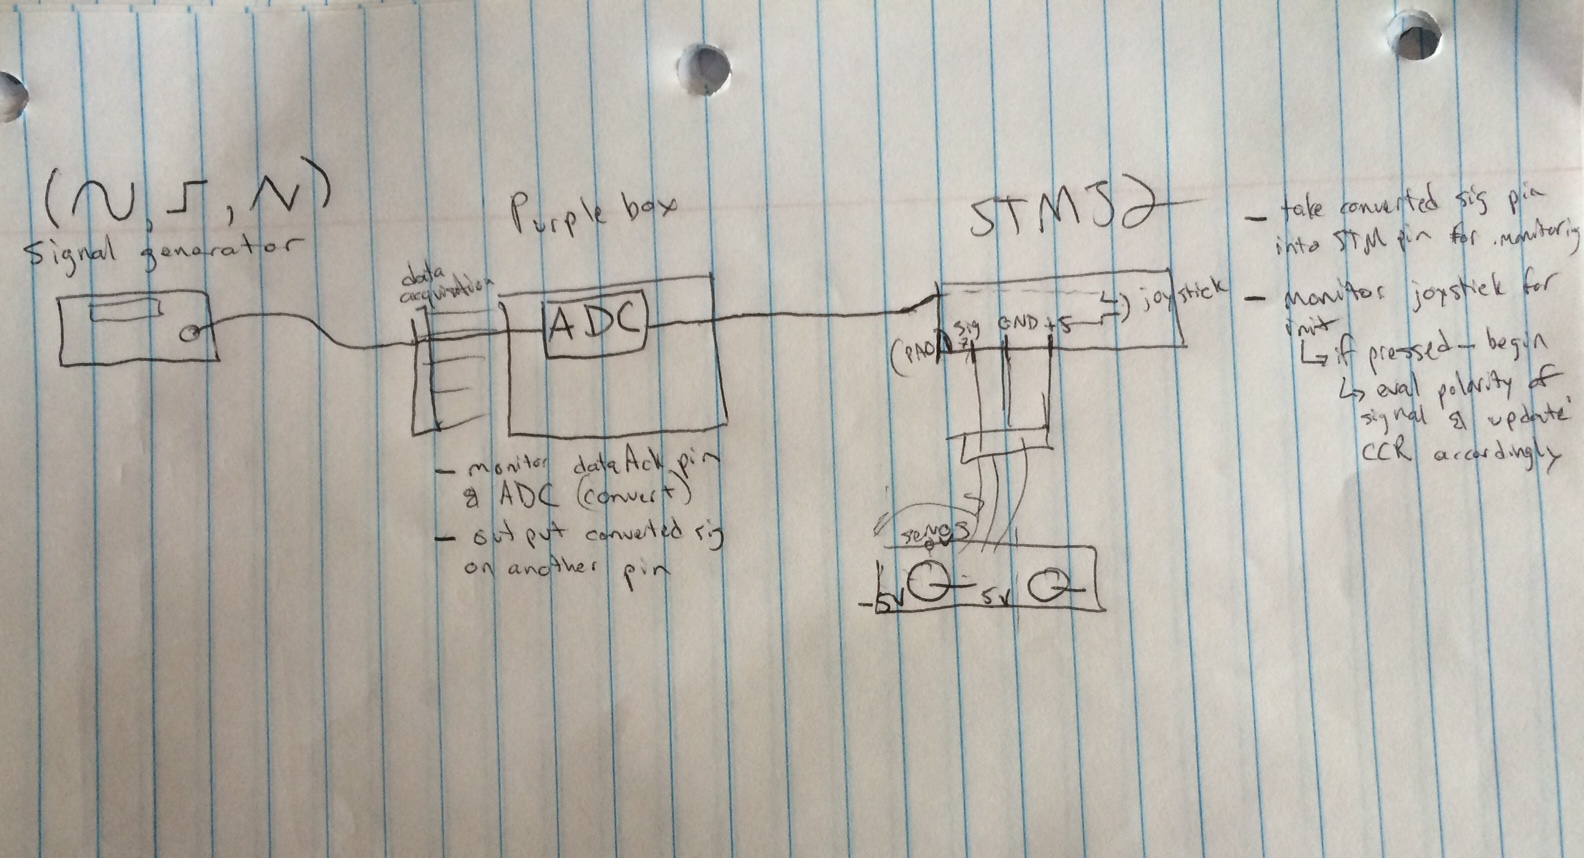 Signal generator
Purple box
data
acquisition
ADC
- monitor dataAck pin
& ADC (convert)
- output converted sig
on another pin
STM32
joystick
(PA0)
sig
GND
+5
servos
-5V
0V
5V
- take converted sig pin
into STM pin for monitoring
- monitor joystick for
init
↳ if pressed - begin
↳ eval polarity of
signal & update
CCR accordingly